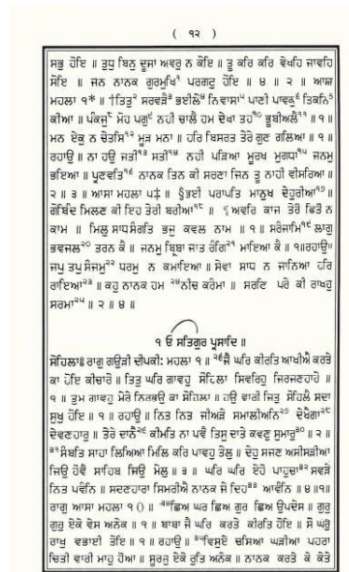 ( ੧੨ )
ਸਭੁ ਹੋਇ ॥ ਤੁਧੁ ਬਿਨੁ ਦੂਜਾ ਅਵਰੁ ਨ ਕੋਇ ॥ ਤੂ ਕਰਿ ਕਰਿ ਵੇਖਹਿ ਜਾਣਹਿ
ਸੋਇ ॥ ਜਨ ਨਾਨਕ ਗੁਰਮੁਖਿ¹ ਪਰਗਟੁ ਹੋਇ ॥ ੪ ॥ ੨ ॥ ਆਸਾ
ਮਹਲਾ ੧* ॥ †ਤਿਤੁ² ਸਰਵਰੜੈ³ ਭਈਲੇ⁴ ਨਿਵਾਸਾ⁵ ਪਾਣੀ ਪਾਵਕੁ⁶ ਤਿਨਹਿ⁷
ਕੀਆ ॥ ਪੰਕਜੁ⁸ ਮੋਹ ਪਗੁ⁹ ਨਹੀ ਚਾਲੈ ਹਮ ਦੇਖਾ ਤਹ¹⁰ ਡੂਬੀਅਲੇ¹¹ ॥ ੧ ॥
ਮਨ ਏਕੁ ਨ ਚੇਤਸਿ¹² ਮੂੜ ਮਨਾ ॥ ਹਰਿ ਬਿਸਰਤ ਤੇਰੇ ਗੁਣ ਗਲਿਆ ॥ ੧ ॥
ਰਹਾਉ ॥ ਨਾ ਹਉ ਜਤੀ¹³ ਸਤੀ¹⁴ ਨਹੀ ਪੜਿਆ ਮੂਰਖ ਮੁਗਧਾ¹⁵ ਜਨਮੁ
ਭਇਆ ॥ ਪ੍ਰਣਵਤਿ¹⁶ ਨਾਨਕ ਤਿਨ ਕੀ ਸਰਣਾ ਜਿਨ ਤੂ ਨਾਹੀ ਵੀਸਰਿਆ ॥
੨ ॥ ੩ ॥ ਆਸਾ ਮਹਲਾ ੫‡ ॥ §ਭਈ ਪਰਾਪਤਿ ਮਾਨੁਖ ਦੇਹੁਰੀਆ¹⁷ ॥
ਗੋਬਿੰਦ ਮਿਲਣ ਕੀ ਇਹ ਤੇਰੀ ਬਰੀਆ¹⁸ ॥ ਅਵਰਿ ਕਾਜ ਤੇਰੈ ਕਿਤੈ ਨ
ਕਾਮ ॥ ਮਿਲੁ ਸਾਧਸੰਗਤਿ ਭਜੁ ਕੇਵਲ ਨਾਮ ॥ ੧ ॥ ਸਰੰਜਾਮਿ¹⁹ ਲਾਗੁ
ਭਵਜਲ²⁰ ਤਰਨ ਕੈ ॥ ਜਨਮੁ ਬ੍ਰਿਥਾ ਜਾਤ ਰੰਗਿ²¹ ਮਾਇਆ ਕੈ ॥ ੧॥ਰਹਾਉ॥
ਜਪੁ ਤਪੁ ਸੰਜਮੁ²² ਧਰਮੁ ਨ ਕਮਾਇਆ ॥ ਸੇਵਾ ਸਾਧ ਨ ਜਾਨਿਆ ਹਰਿ
ਰਾਇਆ²³ ॥ ਕਹੁ ਨਾਨਕ ਹਮ ²⁴ਨੀਚ ਕਰੰਮਾ ॥ ਸਰਣਿ ਪਰੇ ਕੀ ਰਾਖਹੁ
ਸਰਮਾ²⁵ ॥ ੨ ॥ ੪ ॥
੧ ਓ ਸਤਿਗੁਰ ਪ੍ਰਸਾਦਿ ॥
ਸੋਹਿਲਾ ਰਾਗੁ ਗਉੜੀ ਦੀਪਕੀ: ਮਹਲਾ ੧ ॥ ²⁶ਜੈ ਘਰਿ ਕੀਰਤਿ ਆਖੀਐ ਕਰਤੇ
ਕਾ ਹੋਇ ਬੀਚਾਰੋ ॥ ਤਿਤੁ ਘਰਿ ਗਾਵਹੁ ਸੋਹਿਲਾ ਸਿਵਰਿਹੁ ਸਿਰਜਣਹਾਰੋ ॥
੧ ॥ ਤੁਮ ਗਾਵਹੁ ਮੇਰੇ ਨਿਰਭਉ ਕਾ ਸੋਹਿਲਾ ॥ ਹਉ ਵਾਰੀ ਜਿਤੁ ਸੋਹਿਲੈ ਸਦਾ
ਸੁਖੁ ਹੋਇ ॥ ੧ ॥ ਰਹਾਉ ॥ ਨਿਤ ਨਿਤ ਜੀਅੜੇ ਸਮਾਲੀਅਨਿ ਦੇਖੈਗਾ
ਦੇਵਣਹਾਰੁ ॥ ਤੇਰੇ ਦਾਨੈ ਕੀਮਤਿ ਨਾ ਪਵੈ ਤਿਸੁ ਦਾਤੇ ਕਵਣੁ ਸੁਮਾਰੁ ॥ ੨ ॥
ਸੰਬਤਿ ਸਾਹਾ ਲਿਖਿਆ ਮਿਲਿ ਕਰਿ ਪਾਵਹੁ ਤੇਲੁ ॥ ਦੇਹੁ ਸਜਣ ਅਸੀਸੜੀਆ
ਜਿਉ ਹੋਵੈ ਸਾਹਿਬ ਸਿਉ ਮੇਲੁ ॥ ੩ ॥ ਘਰਿ ਘਰਿ ਏਹੋ ਪਾਹੁਚਾ ਸਦੜੇ
ਨਿਤ ਪਵੰਨਿ ॥ ਸਦਣਹਾਰਾ ਸਿਮਰੀਐ ਨਾਨਕ ਸੇ ਦਿਹ ਆਵੰਨਿ ॥ ੪ ॥੧॥
ਰਾਗੁ ਆਸਾ ਮਹਲਾ ੧ ॥ ਛਿਅ ਘਰ ਛਿਅ ਗੁਰ ਛਿਅ ਉਪਦੇਸ ॥ ਗੁਰੁ
ਗੁਰੁ ਏਕੋ ਵੇਸ ਅਨੇਕ ॥ ੧ ॥ ਬਾਬਾ ਜੈ ਘਰਿ ਕਰਤੇ ਕੀਰਤਿ ਹੋਇ ॥ ਸੋ ਘਰੁ
ਰਾਖੁ ਵਡਾਈ ਤੋਇ ॥ ੧ ॥ ਰਹਾਉ ॥ ਵਿਸੁਏ ਚਸਿਆ ਘੜੀਆ ਪਹਰਾ
ਥਿਤੀ ਵਾਰੀ ਮਾਹੁ ਹੋਆ ॥ ਸੂਰਜੁ ਏਕੋ ਰੁਤਿ ਅਨੇਕ ॥ ਨਾਨਕ ਕਰਤੇ ਕੇ ਕੇਤੇ